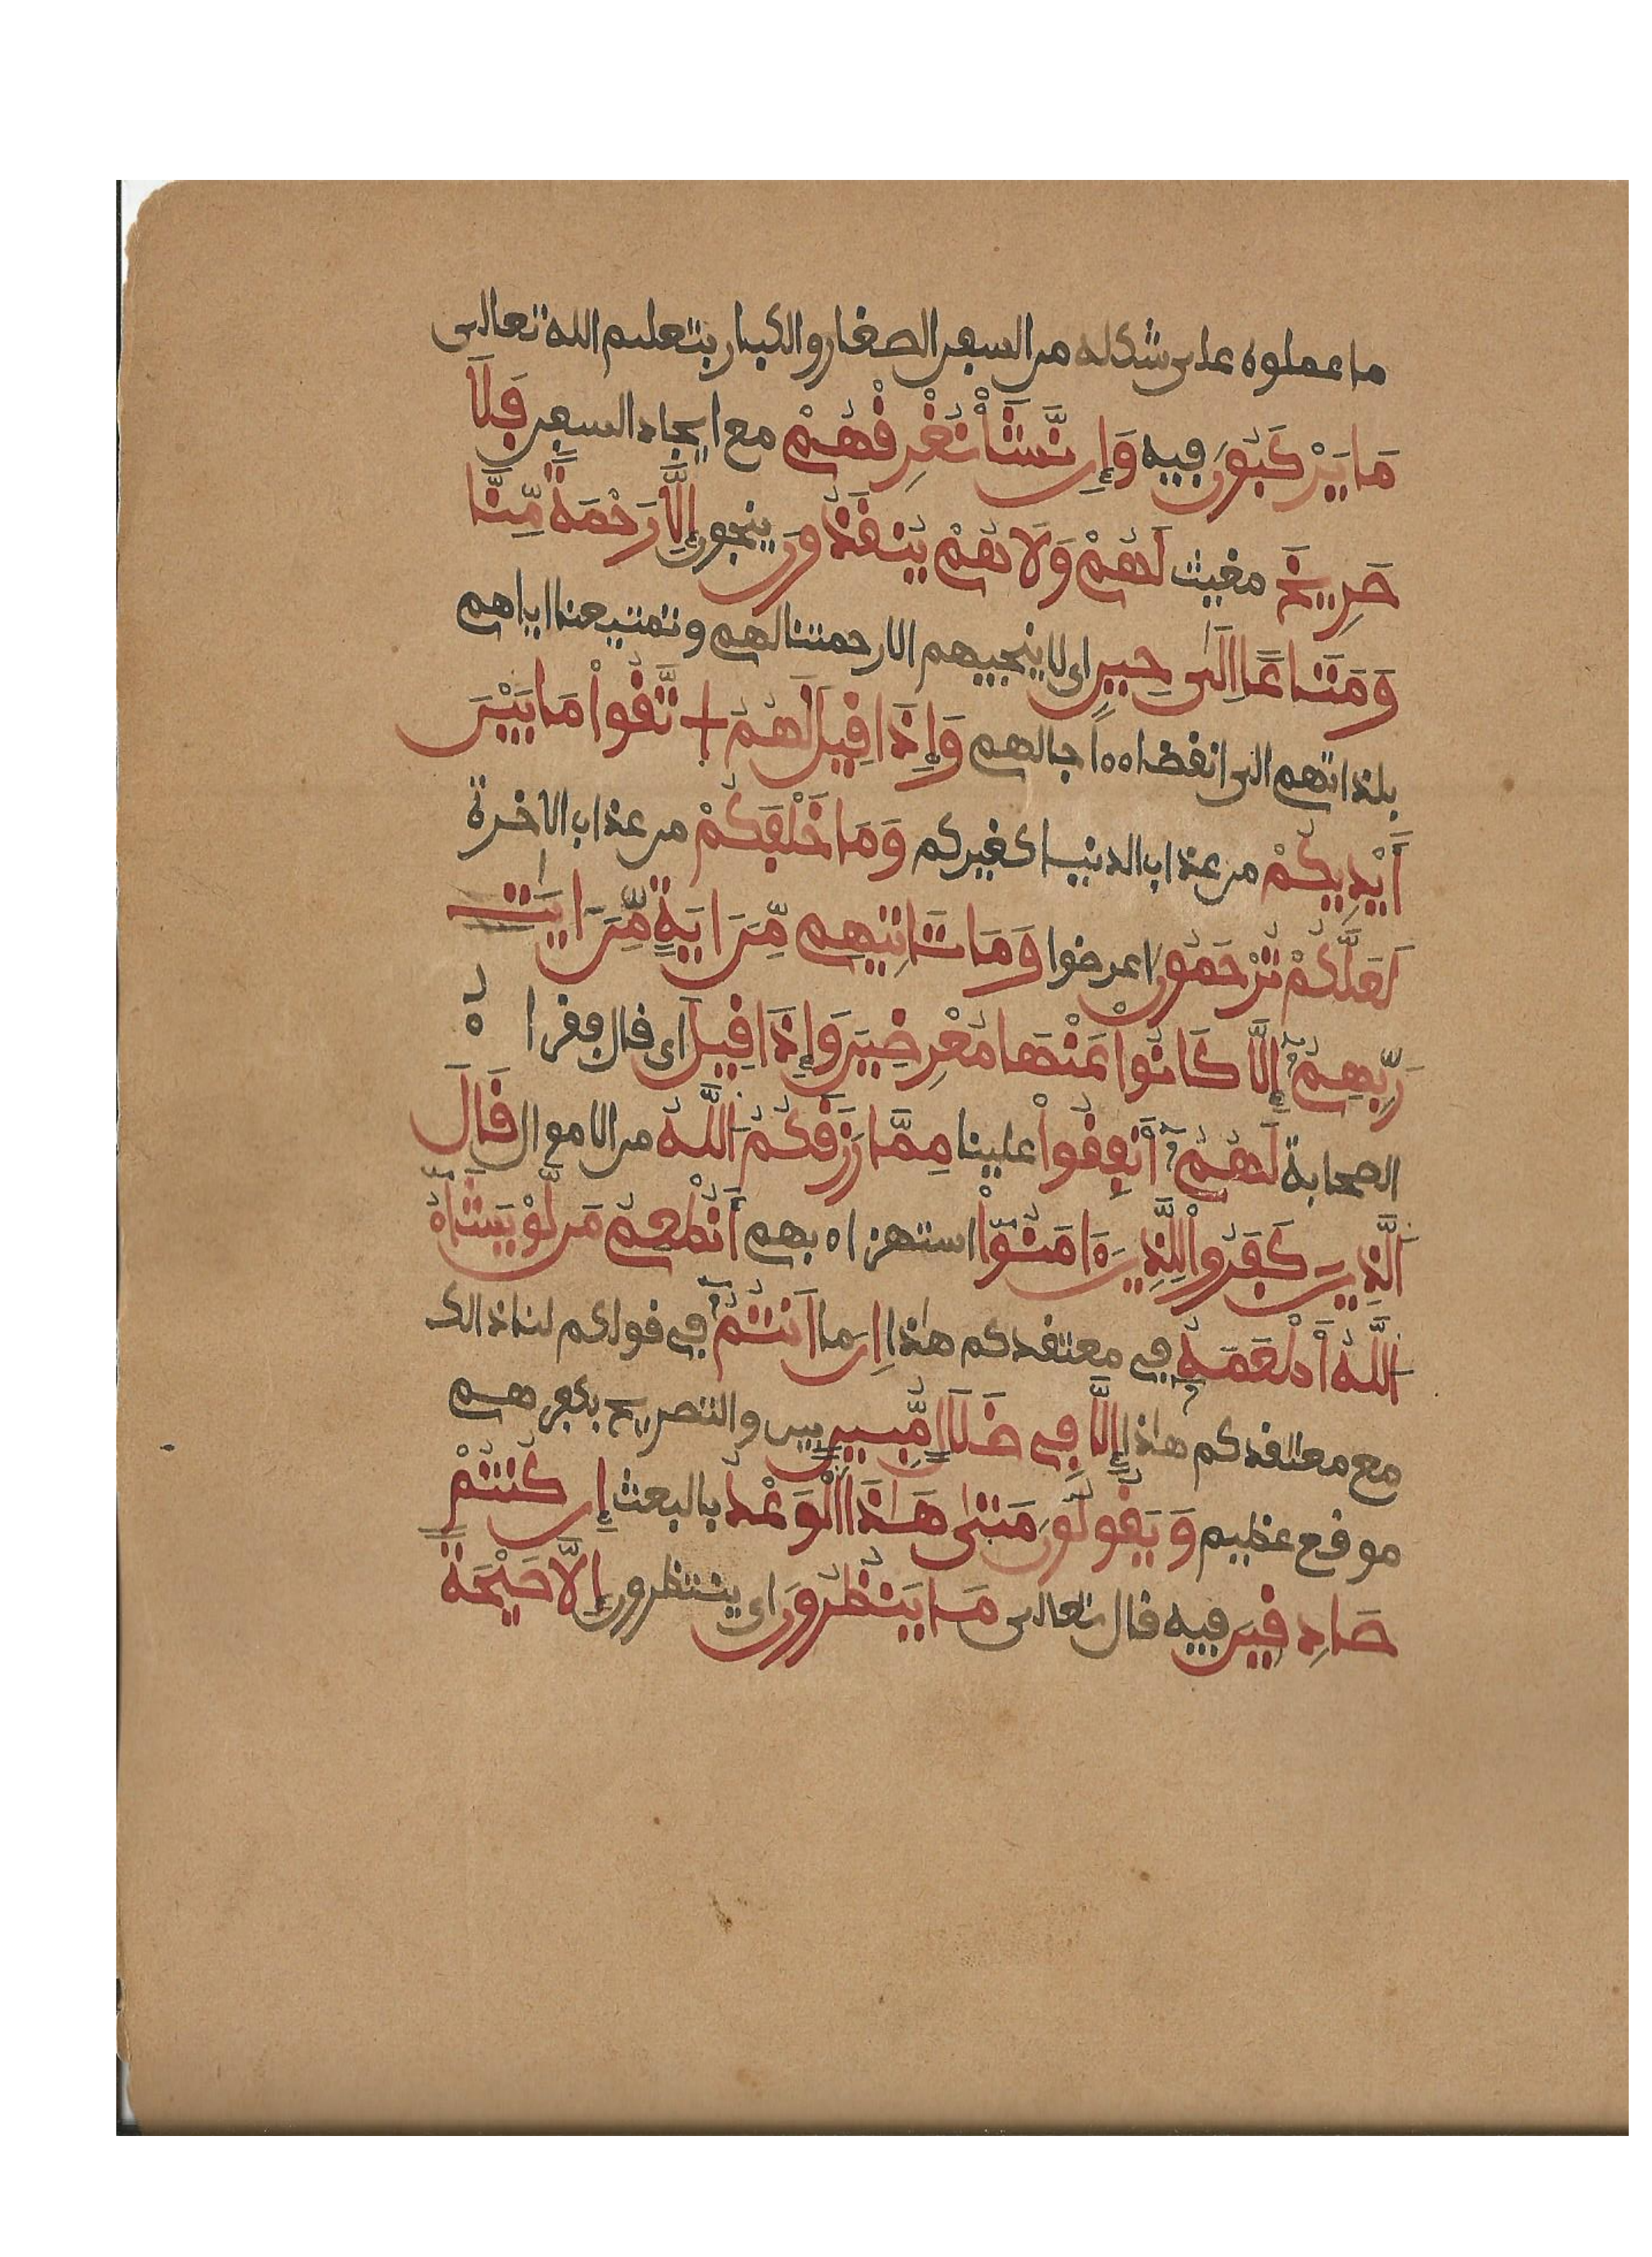 ما عملوه على شكله من السفن الصغار والكبار بتعليم الله تعالى
مَا يَرْكَبُونَ فيه وَإِن نَّشَأْ نُغْرِقْهُمْ مع ايجاد السفن فَلَا
صَرِيخَ مغيث لَهُمْ وَلَا هُمْ يُنقَذُونَ ينجون إِلَّا رَحْمَةً مِّنَّا
وَمَتَاعًا إِلَىٰ حِينٍ اى لا ينجيهم الا رحمتنا لهم وتمتيعنا اياهم
بلذاتهم الى انقضاء اجالهم وَإِذَا قِيلَ لَهُمُ اتَّقُوا مَا بَيْنَ
أَيْدِيكُمْ من عذاب الدنيا كغيركم وَمَا خَلْفَكُمْ من عذاب الاخرة
لَعَلَّكُمْ تُرْحَمُونَ اعرضوا وَمَا تَاتِيهِم مِّنَ ايَةٍ مِّنَ ايَٰتِ
رَبِّهِمُ إِلَّا كَانُوا عَنْهَا مُعْرِضِينَ وَإِذَا قِيلَ اى قال فقرا ءُ
الصحابة لَهُمُ أَنفِقُوا علينا مِمَّا رَزَقَكُمُ اللَّهُ من الاموال قَالَ
الَّذِينَ كَفَرُوا لِلَّذِينَ ءَامَنُوا استهزاء بهم أَنُطْعِمُ مَن لَّوْ يَشَاءُ
اللَّهُ أَطْعَمَهُ في معتقدكم هٰذا إِنَ انتُمُ في قولكم لنا ذالك
مع معتقدكم هٰذا إِلَّا فِي ضَلَٰلٍ مُّبِينٍ بين والتصريح بكفرهم
موقع عظيم وَيَقُولُونَ مَتَىٰ هَٰذَا الْوَعْدُ بالبعث إِن كُنتُمْ
صَادِقِينَ فيه قال تعالى مَا يَنظُرُونَ اى ينتظرون إِلَّا صَيْحَةً